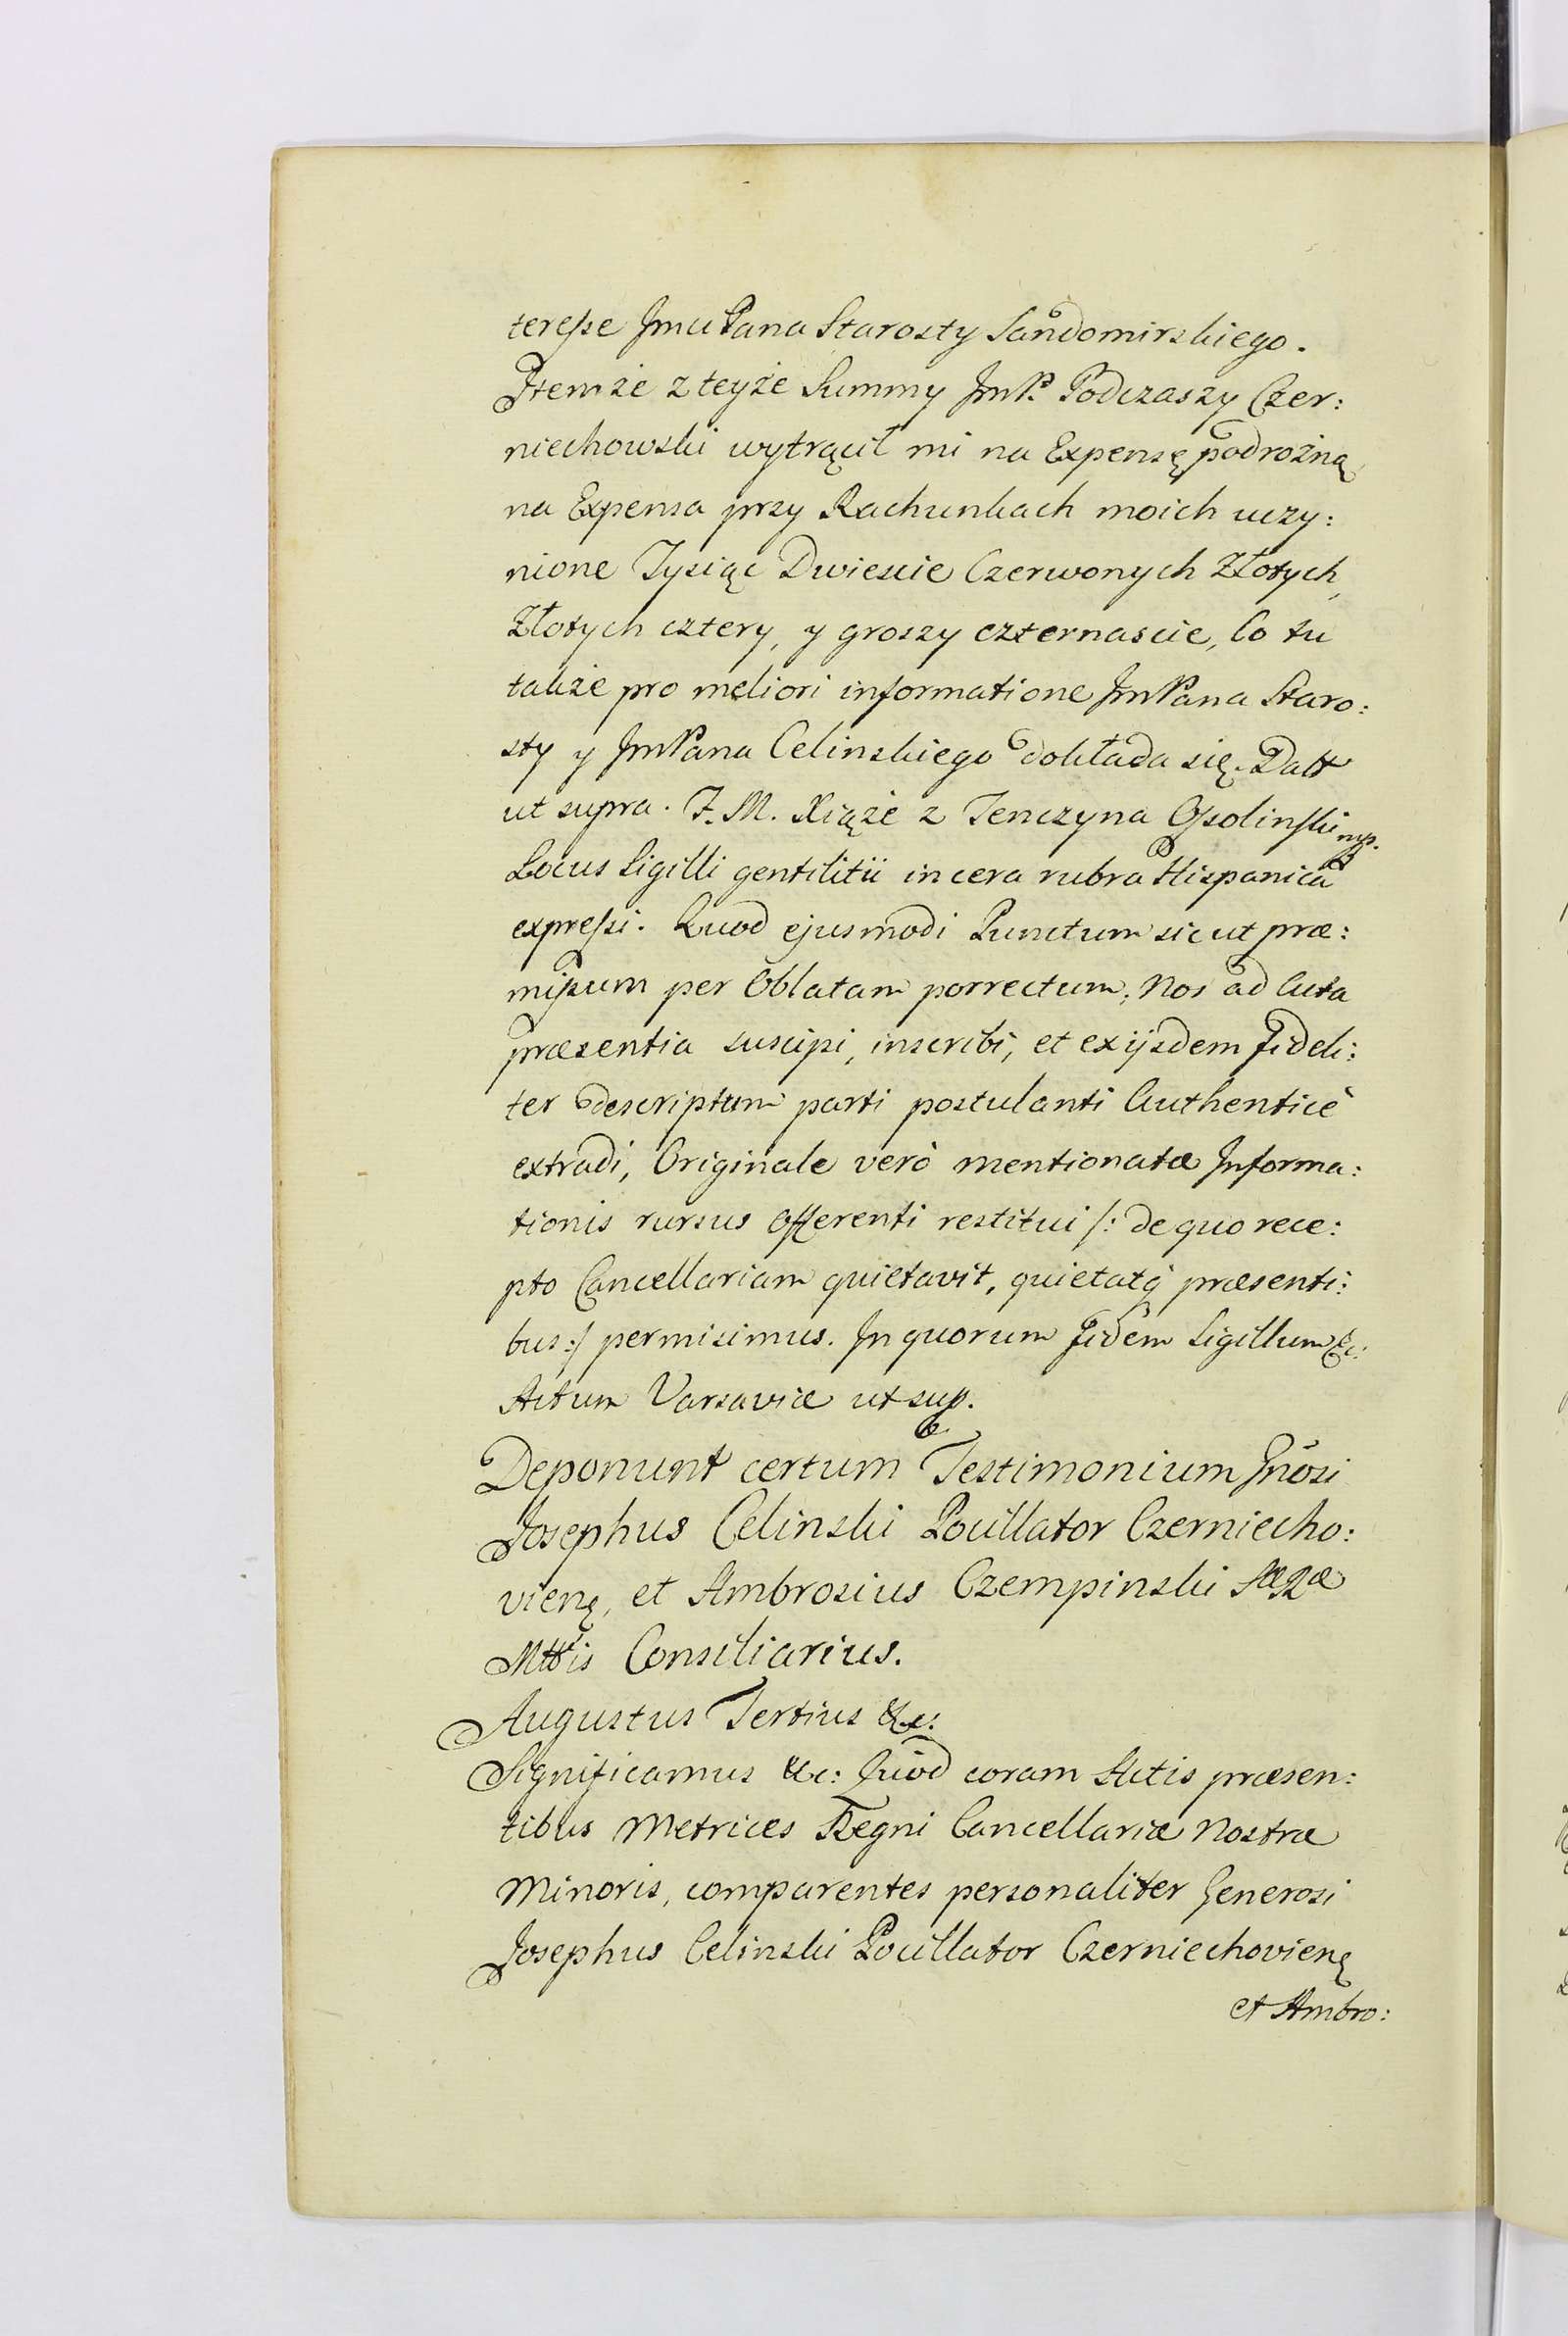 teresse Jmci Pana Starosty Sandomirskiego.
Item że z teyże Summy JmP. Podczaszy Czer:
niechowski wytrącił mi na Expensę podrożną
na Expensa przy Rachunkach moich uczy:
nione Tysiąc Dwiescie Czerwonych Złotych,
Złotych cztery, y groszy czternascie, Co tu
także pro meliori informatione JmPana Staro:
sty y JmPana Celinskiego dokłada się. Datt
ut supra. F. M. Xiąże z Tenczyna Ossolinski mp.
Locus Sigilli gentilitii in cera rubra Hispanica
expressi. Quod ejusmodi Punctum sicut præ:
missum per Oblatam porrectum, Nos ad Acta
præsentia suscipi, inscribi, et ex ijsdem fideli:
ter descriptum parti postulanti Authenticè
extradi, Originale verò mentionatæ Informa:
tionis rursus Offerenti restitui /: de quo rece:
pto Cancellariam quietavit, quietatq præsenti:
bus :/ permisimus. In quorum fidem Sigillum &c:
Actum Varsaviæ ut sup.
Deponunt certum Testimonium Gnosi
Josephus Celinski Pocillator Czerniecho:
vienę, et Ambrosius Czempinski Sæ Ræ
Mttis Consiliarius.
Augustus Tertius &c:
Significamus &c: Quod coram Actis præsen:
tibus Metrices Regni Cancellariæ Nostræ
Minoris, comparentes personaliter Generosi
Josephus Celinski Pocillator Czerniechovienę
et Ambro: